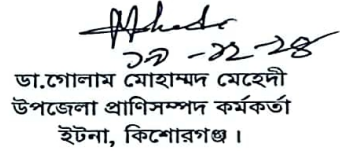 ডা.গোলাম মোহাম্মদ মেহেদী
উপজেলা প্রাণিসম্পদ কর্মকর্তা
ইটনা, কিশোরগঞ্জ ।